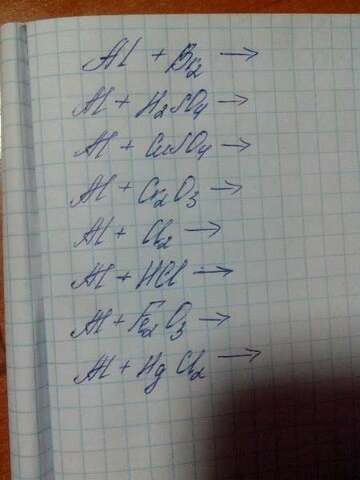 Al + Br2 →
Al + H2SO4 →
Al + CuSO4 →
Al + Cr2O3 →
Al + Cl2 →
Al + HCl →
Al + Fe2O3 →
Al + HgCl2 →